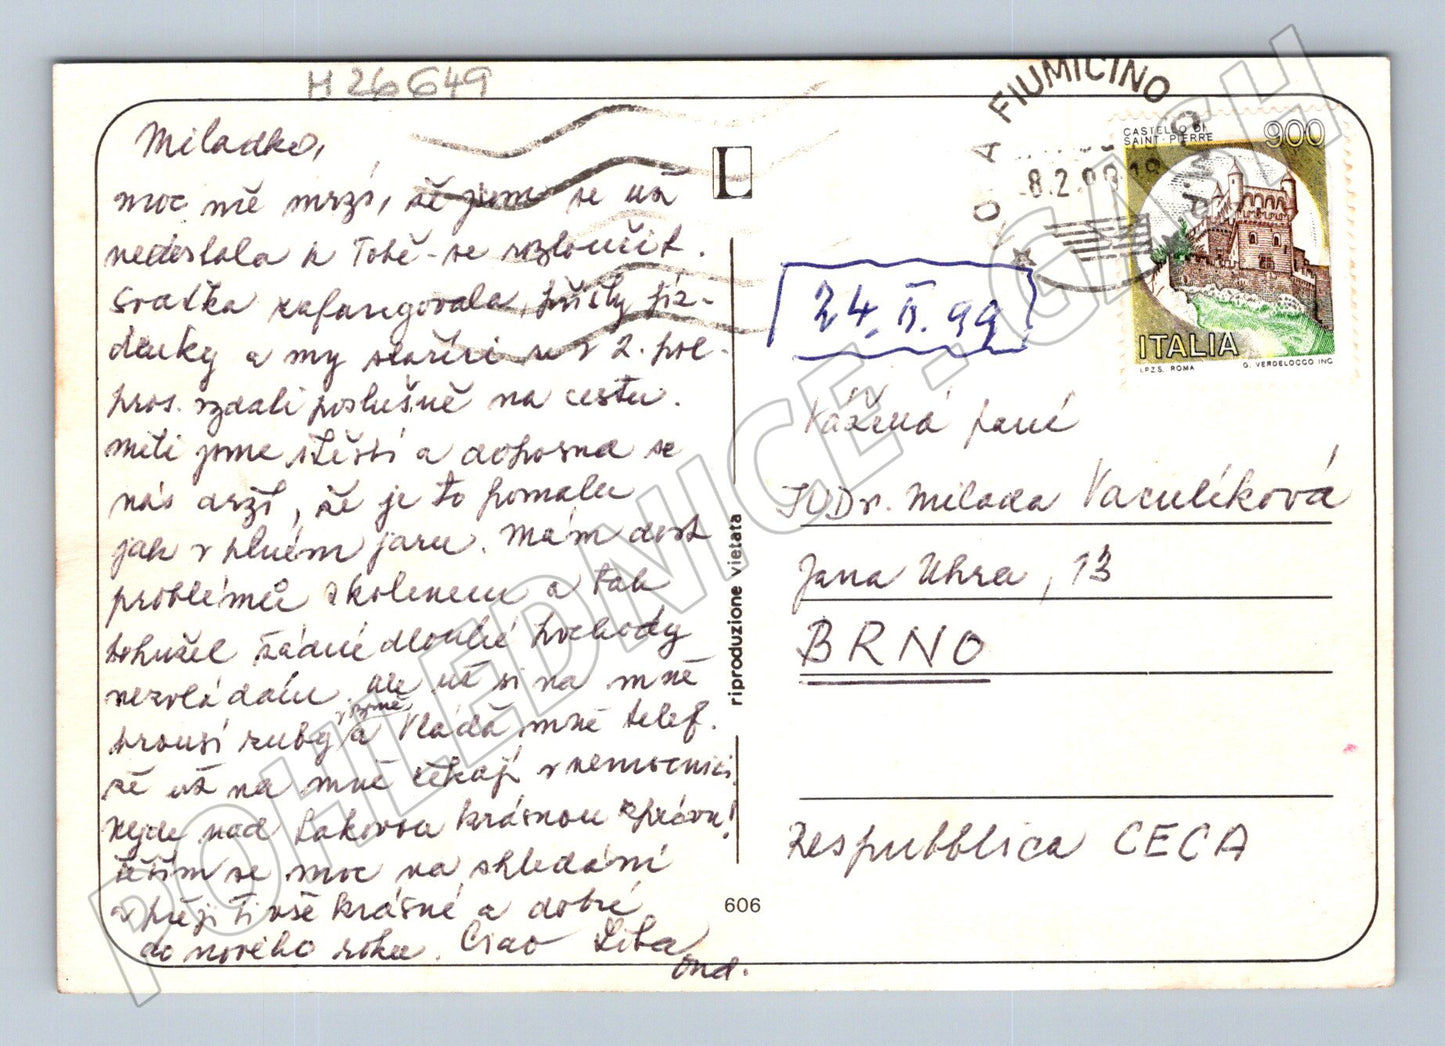 H 26649
Miladko,
moc mě mrzí, že jsem se už
nedostala k Tobě se rozloučit.
Svaťka zafungovala, přišly jíz-
denky a my staříci se v 2. pol.
pros. vydali poslušně na cestu.
Měli jsme štěstí a dohosud se
nás drží, že je to pomalu
jak v plném jaru. Mám dost
problémů s kolenem a tak
bohužel žádné dlouhé pochody
nezvládám, ale už si na mně
brousí zuby a Vláďa mně telef.
v Brně
že už na mně čekají v nemocnici.
Nejde nad takovou krásnou zprávu!
Těším se moc na shledání
a přeji Ti vše krásné a dobré
do nového roku. Ciao Liba
Ond.
L
riproduzione vietata
606
FIUMICINO
8.2.99
24. II. 99
CASTELLO DI
SAINT-PIERRE
900
ITALIA
I.P.Z.S. ROMA
G. VERDELOCCO INC.
Vážená paní
JUDr. Milada Vaculíková
Jana Uhra, 13
BRNO
Respubblica CECA
POHLEDNICE.GASH